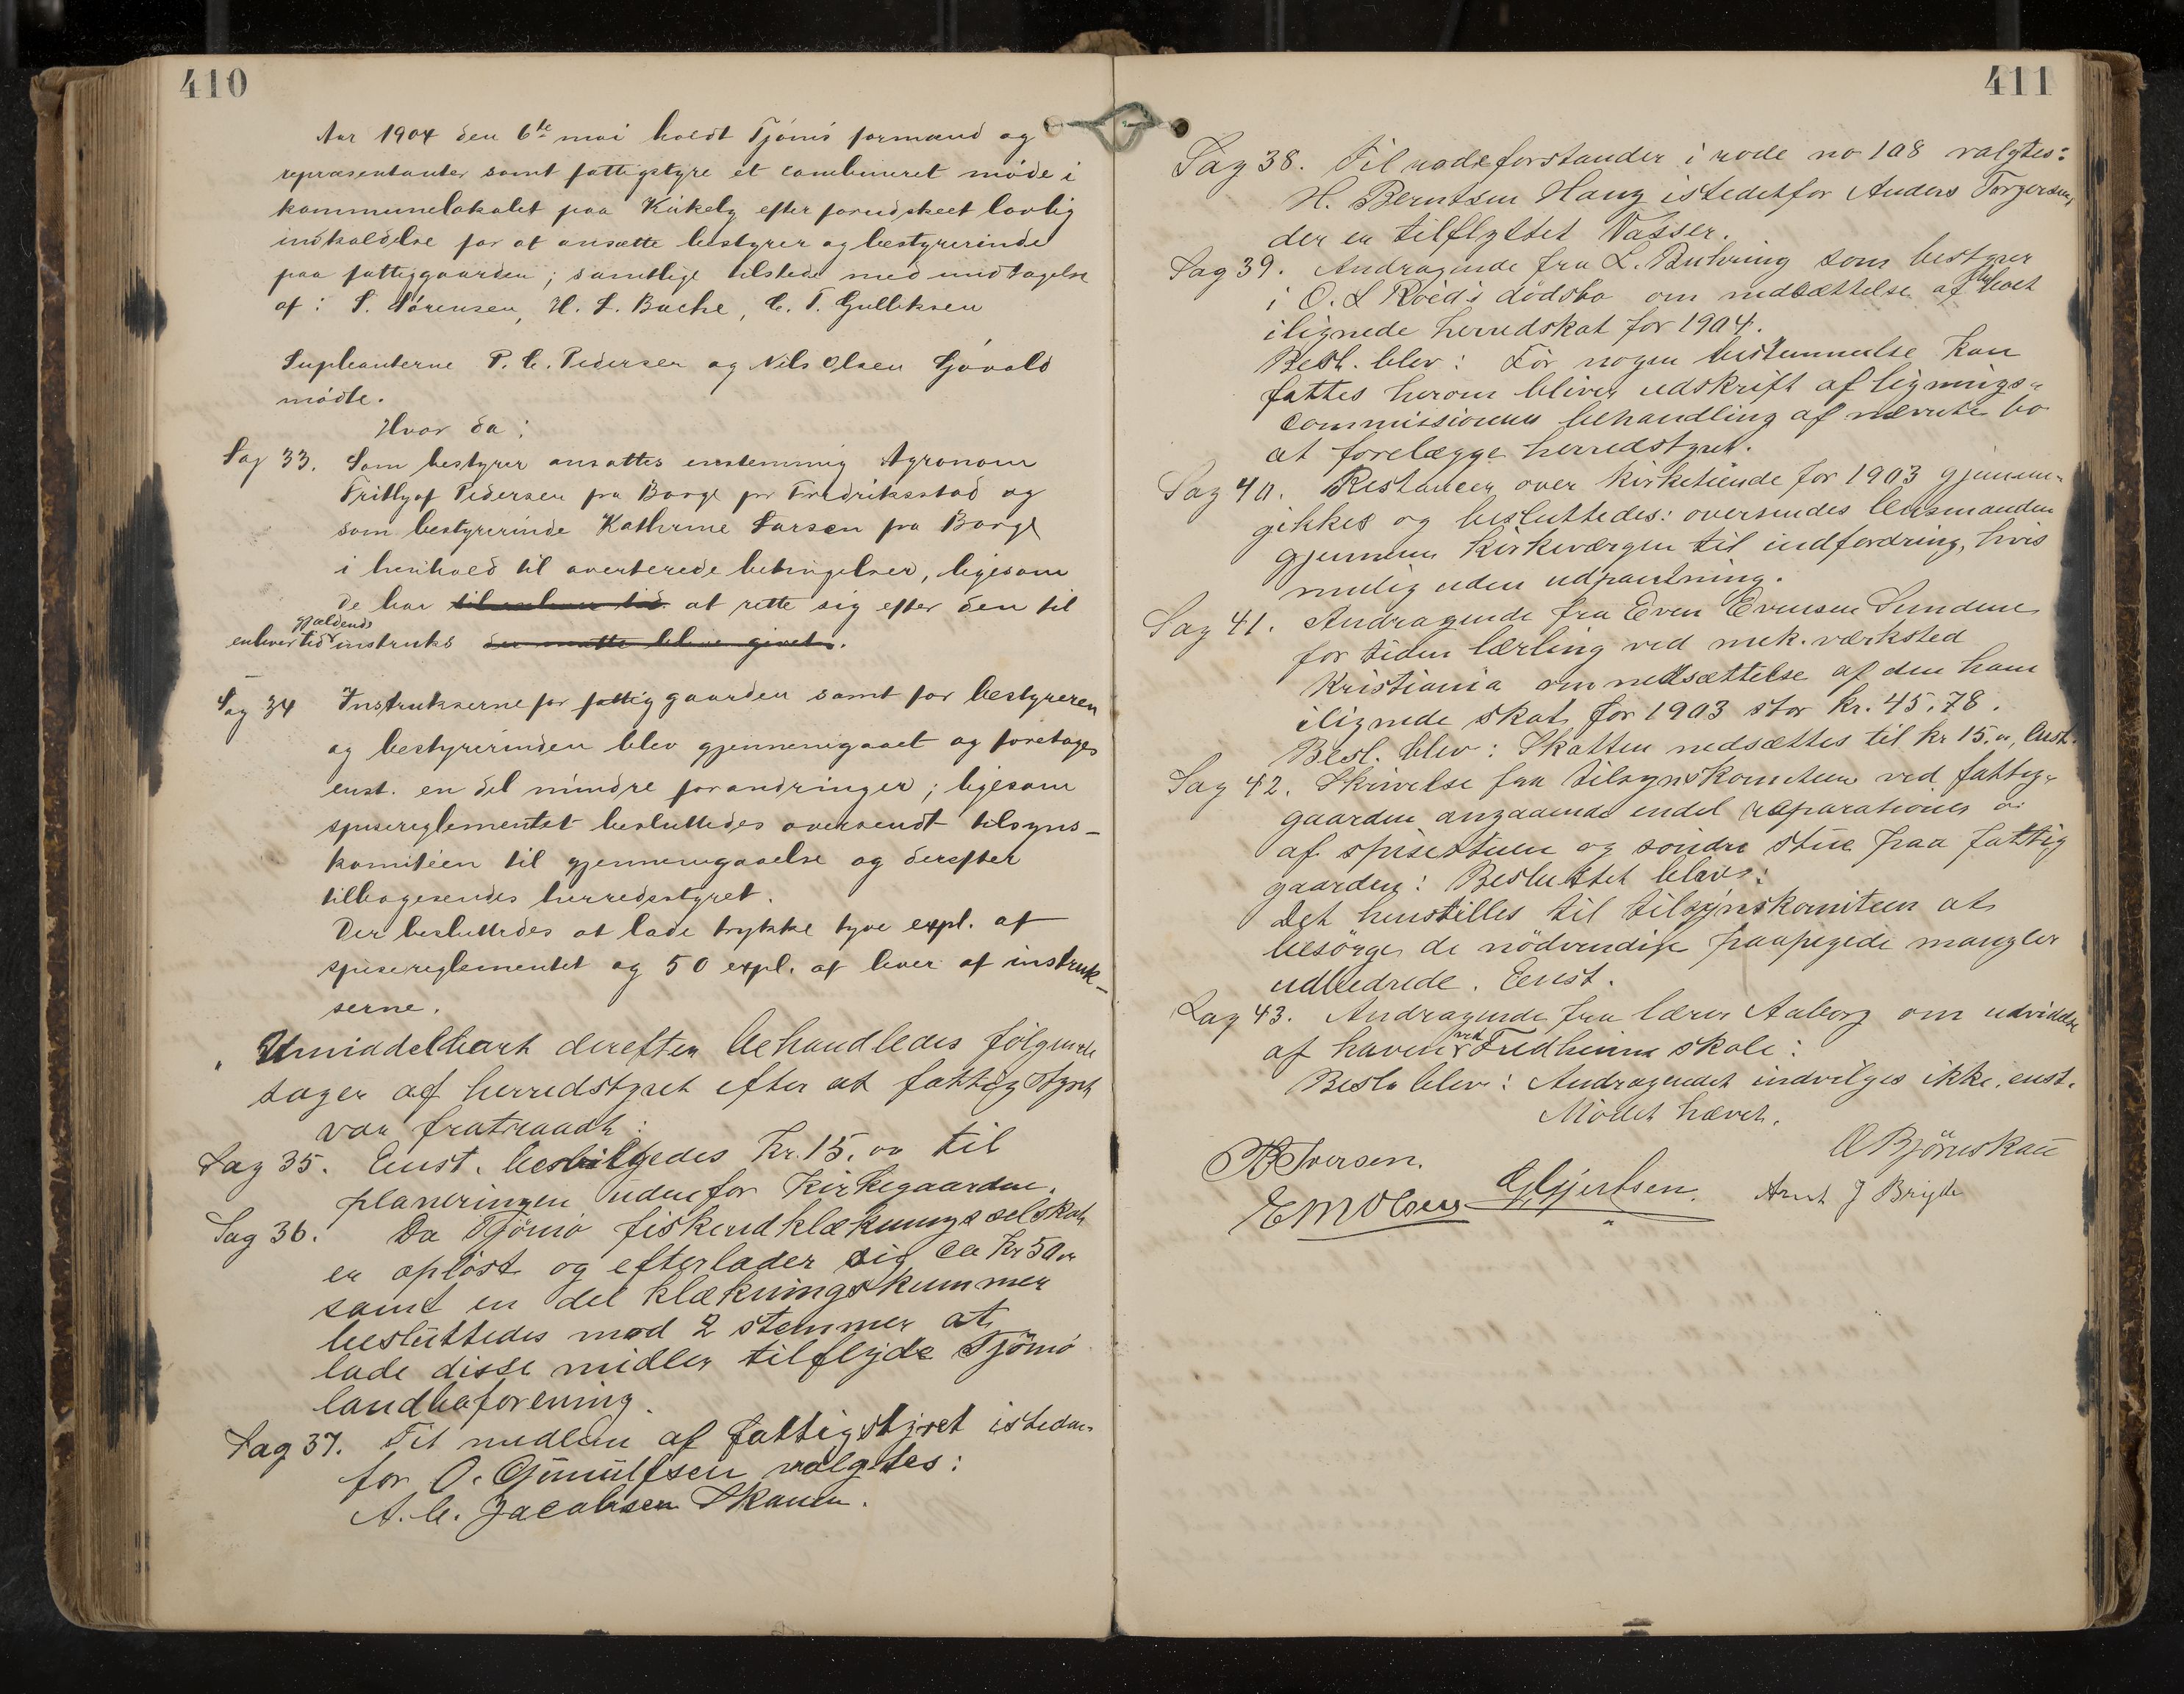 410
Aar 1904 den 6te mai holdt Tjømø formand og
repræsentanter samt fattigstyre et combineret møde i
kommunelokalet paa Kirkely efter forudskeet lovlig
indkaldelse for at ansætte bestyrer og bestyrerinde
paa fattiggaarden; samtlige tilstede med undtagelse
af: S. Sørensen, H. L. Bache, C. T. Gulliksen
Supleanterne P. C. Pedersen og Nils Olsen Gjøvald
mödte.
Hvor da:
Sag 33. Som bestyrer ansattes enstemmig Agronom
Frithjof Pedersen fra Borge pr Fredriksstad og
som bestyrerinde Kathrine Larsen fra Borge
i henhold til averterede betingelser, ligesom
de har til enhver tid at rette sig efter den til
enhver tid gjældende instruks der maatte blive givet.
Sag 34 Instrukserne for fattiggaarden samt for bestyreren
og bestyrerinden blev gjennemgaaet og foretoges
enst. en del mindre forandringer; ligesom
spisereglementet besluttedes oversendt tilsyns-
komitéen til gjennemgaaelse og derefter
tilbagesendes herredsstyret.
Der besluttedes at lade trykke tyve expl. af
spisereglementet og 50 expl. af hver af instruk-
serne.
Umiddelbart derefter behandledes følgende
sager af herredstyret efter at fattigstyret
var fratraadt:
Sag 35. Enst. besvilgedes Kr. 15.00 til
planeringen udenfor Kirkegaarden.
Sag 36. Da Tjömö fiskeudklækningsselskab
er opløst og efterlader sig ca Kr 50.00
samt en del klækningskummer
besluttedes mod 2 stemmer at
lade disse midler tilflyde Tjömö
landboforening.
Sag 37. Til medlem af fattigstyret isteden-
for O. Gunulfsen valgtes:
A. C. Jacobsen Skauen.
411
Sag 38. Til rodeforstander i rode no 108 valgtes:
H. Berntsen Haug istedetfor Anders Torgersen,
der er tilflyttet Vasser.
Sag 39. Andragende fra L. Buhring som bestyrer
i O. L Roed's dödsbo om nedsættelse af boet
ilignede herredskat for 1904.
Besl. blev: Før nogen bestemmelse kan
fattes herom bliver udskrift af lignings-
commissionens behandling af nævnte bo
at forelægge herredstyret.
Sag 40. Restancen over Kirketiende for 1903 gjennem-
gikkes og besluttedes: oversendes lensmanden
gjennem Kirkeværgen til indfordring, hvis
mulig uden udpantning.
Sag 41. Andragende fra Even Evensen Sundene
for tiden lærling ved mek. værksted
Kristiania om nedsættelse af den ham
ilignede skat for 1903 stor kr. 45,78.
Besl. blev: Skatten nedsættes til kr 15.00, Enst.
Sag 42. Skrivelse fra tilsynskomiteen ved fattig-
gaarden angaaende endel reparationer
af spisestuen og söndre stue paa fattig
gaarden: Besluttet blev:
Det henstilles til tilsynskomiteen at
besörge de nödvendige paapegede mangler
udbedrede. Eenst.
Sag 43. Andragende fra lærer Aaberg om udvidelse
af haven ved Fredheim skole:
Besl. blev: Andragendet indvilges ikke. enst.
Mödet hævet.
B Iversen. O Björnskau
E M Olsen G Gjertsen. Arnt J Bryde